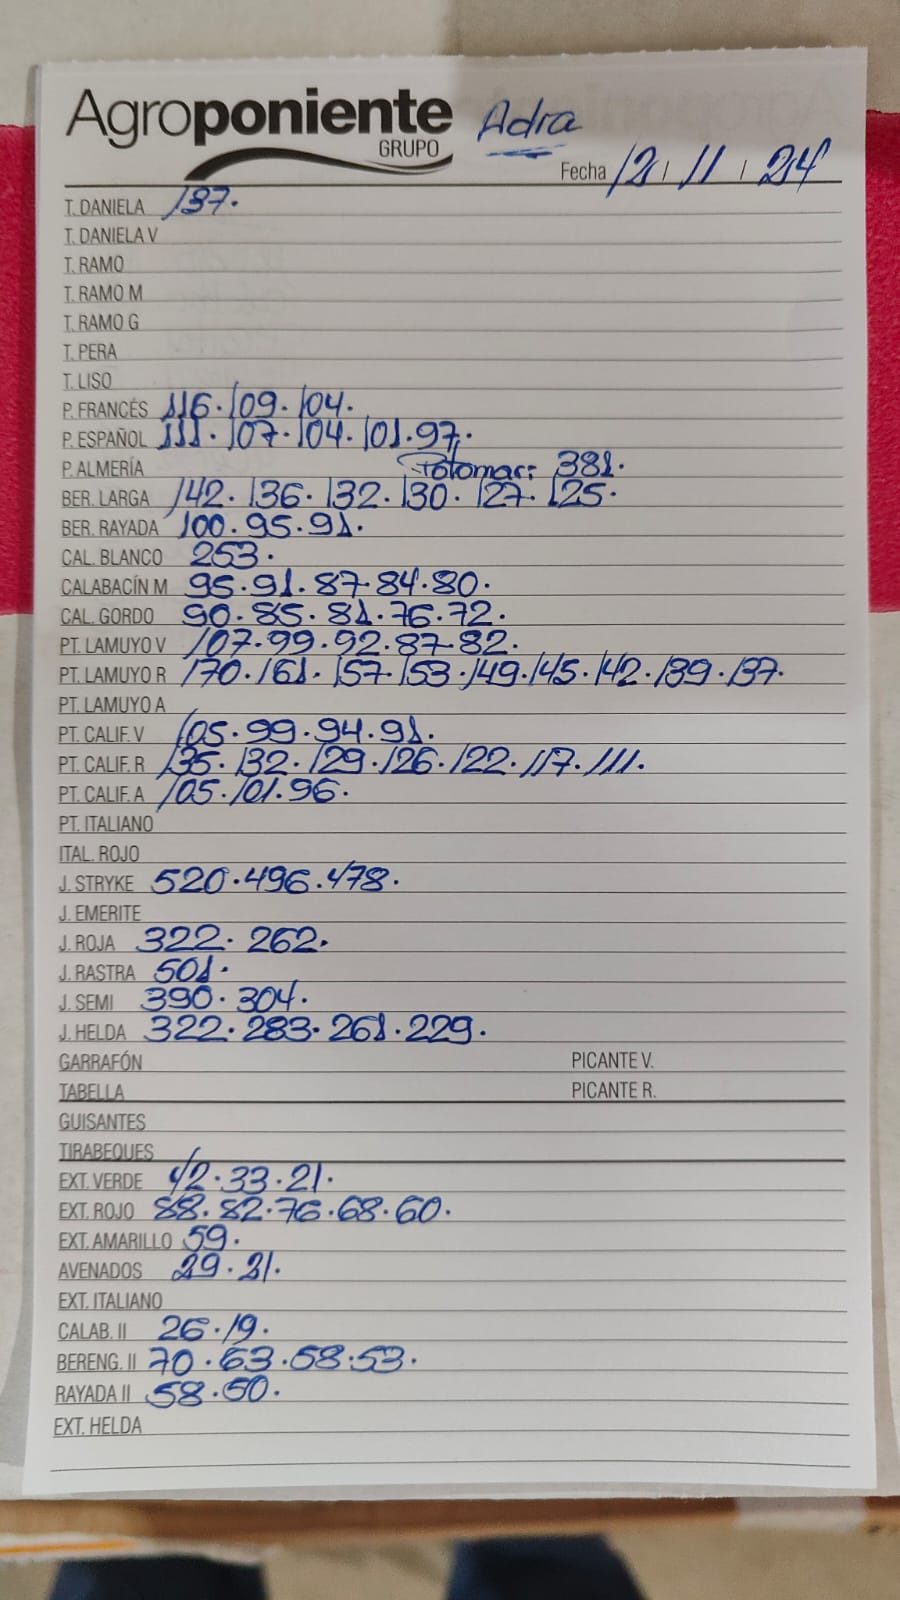 Agroponiente Adra
GRUPO
Fecha 12 / 11 / 24
T. DANIELA 137.
T. DANIELA V
T. RAMO
T. RAMO M
T. RAMO G
T. PERA
T. LISO
P. FRANCÉS 116. 109. 104.
P. ESPAÑOL 111. 107. 104. 101. 97.
P. ALMERÍA Potomac: 381.
BER. LARGA 142. 136. 132. 130. 127. 125.
BER. RAYADA 100. 95. 91.
CAL. BLANCO 253.
CALABACÍN M 95. 91. 87. 84. 80.
CAL. GORDO 90. 85. 81. 76. 72.
PT. LAMUYO V 107. 99. 92. 87. 82.
PT. LAMUYO R 170. 161. 157. 153. 149. 145. 142. 139. 137.
PT. LAMUYO A
PT. CALIF. V 105. 99. 94. 91.
PT. CALIF. R 135. 132. 129. 126. 122. 117. 111.
PT. CALIF. A 105. 101. 96.
PT. ITALIANO
ITAL. ROJO
J. STRYKE 520. 496. 478.
J. EMERITE
J. ROJA 322. 262.
J. RASTRA 501.
J. SEMI 390. 304.
J. HELDA 322. 283. 261. 229.
GARRAFÓN PICANTE V.
TABELLA PICANTE R.
GUISANTES
TIRABEQUES
EXT. VERDE 42. 33. 21.
EXT. ROJO 88. 82. 76. 68. 60.
EXT. AMARILLO 59.
AVENADOS 29. 21.
EXT. ITALIANO
CALAB. II 26. 19.
BERENG. II 70. 63. 58. 53.
RAYADA II 58. 50.
EXT. HELDA